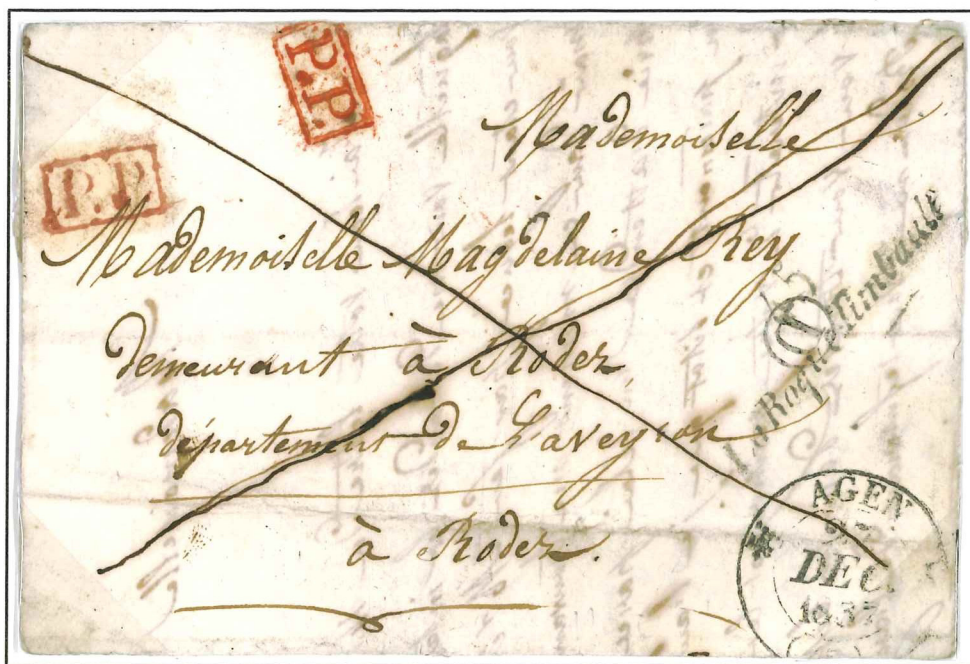 P.P.
P.P.
Mademoiselle
Mademoiselle Magdelaine Rey
demeurant à Rodez
département de Laveyron
à Rodez.
LaRoqueTimbault
AGEN
DEC.